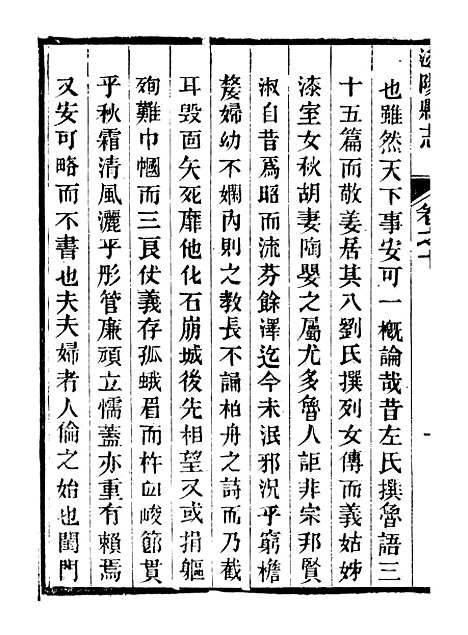 縣志
卷之十
也雖然天下事安可一概論哉昔左氏撰魯語三
十五篇而敬姜居其八劉氏撰列女傳而義姑姊
漆室女秋胡妻陶嬰之屬尤多魯人詎非宗邦賢
淑自昔爲昭而流芬餘澤迄今未泯邪況乎窮檐
嫠婦幼不嫻內則之教長不誦柏舟之詩而乃截
耳毀面矢死靡他化石崩城後先相望又或捐軀
殉難巾幗而三良伏義存孤蛾眉而杵臼峻節貫
乎秋霜清風灑乎彤管廉頑立懦蓋亦重有賴焉
又安可略而不書也夫夫婦者人倫之始也閨門